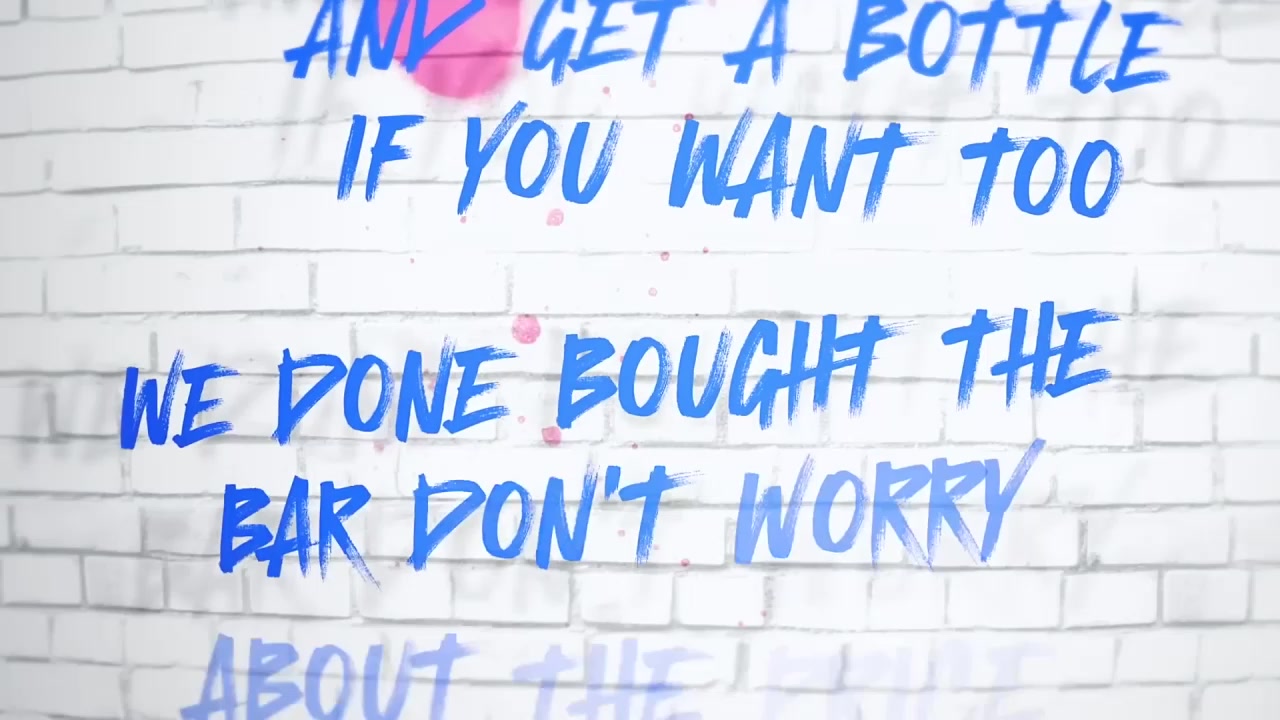 AND GET A BOTTLE
IF YOU WANT TOO
WE DONE BOUGHT THE
BAR DON'T WORRY
ABOUT THE PRICE